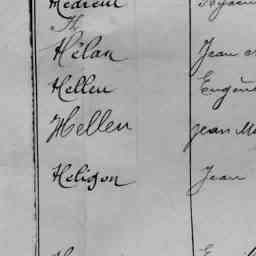 H
Hélan Jean
Hellen Eugène
Hellen Jean Ma
Héligon Jean